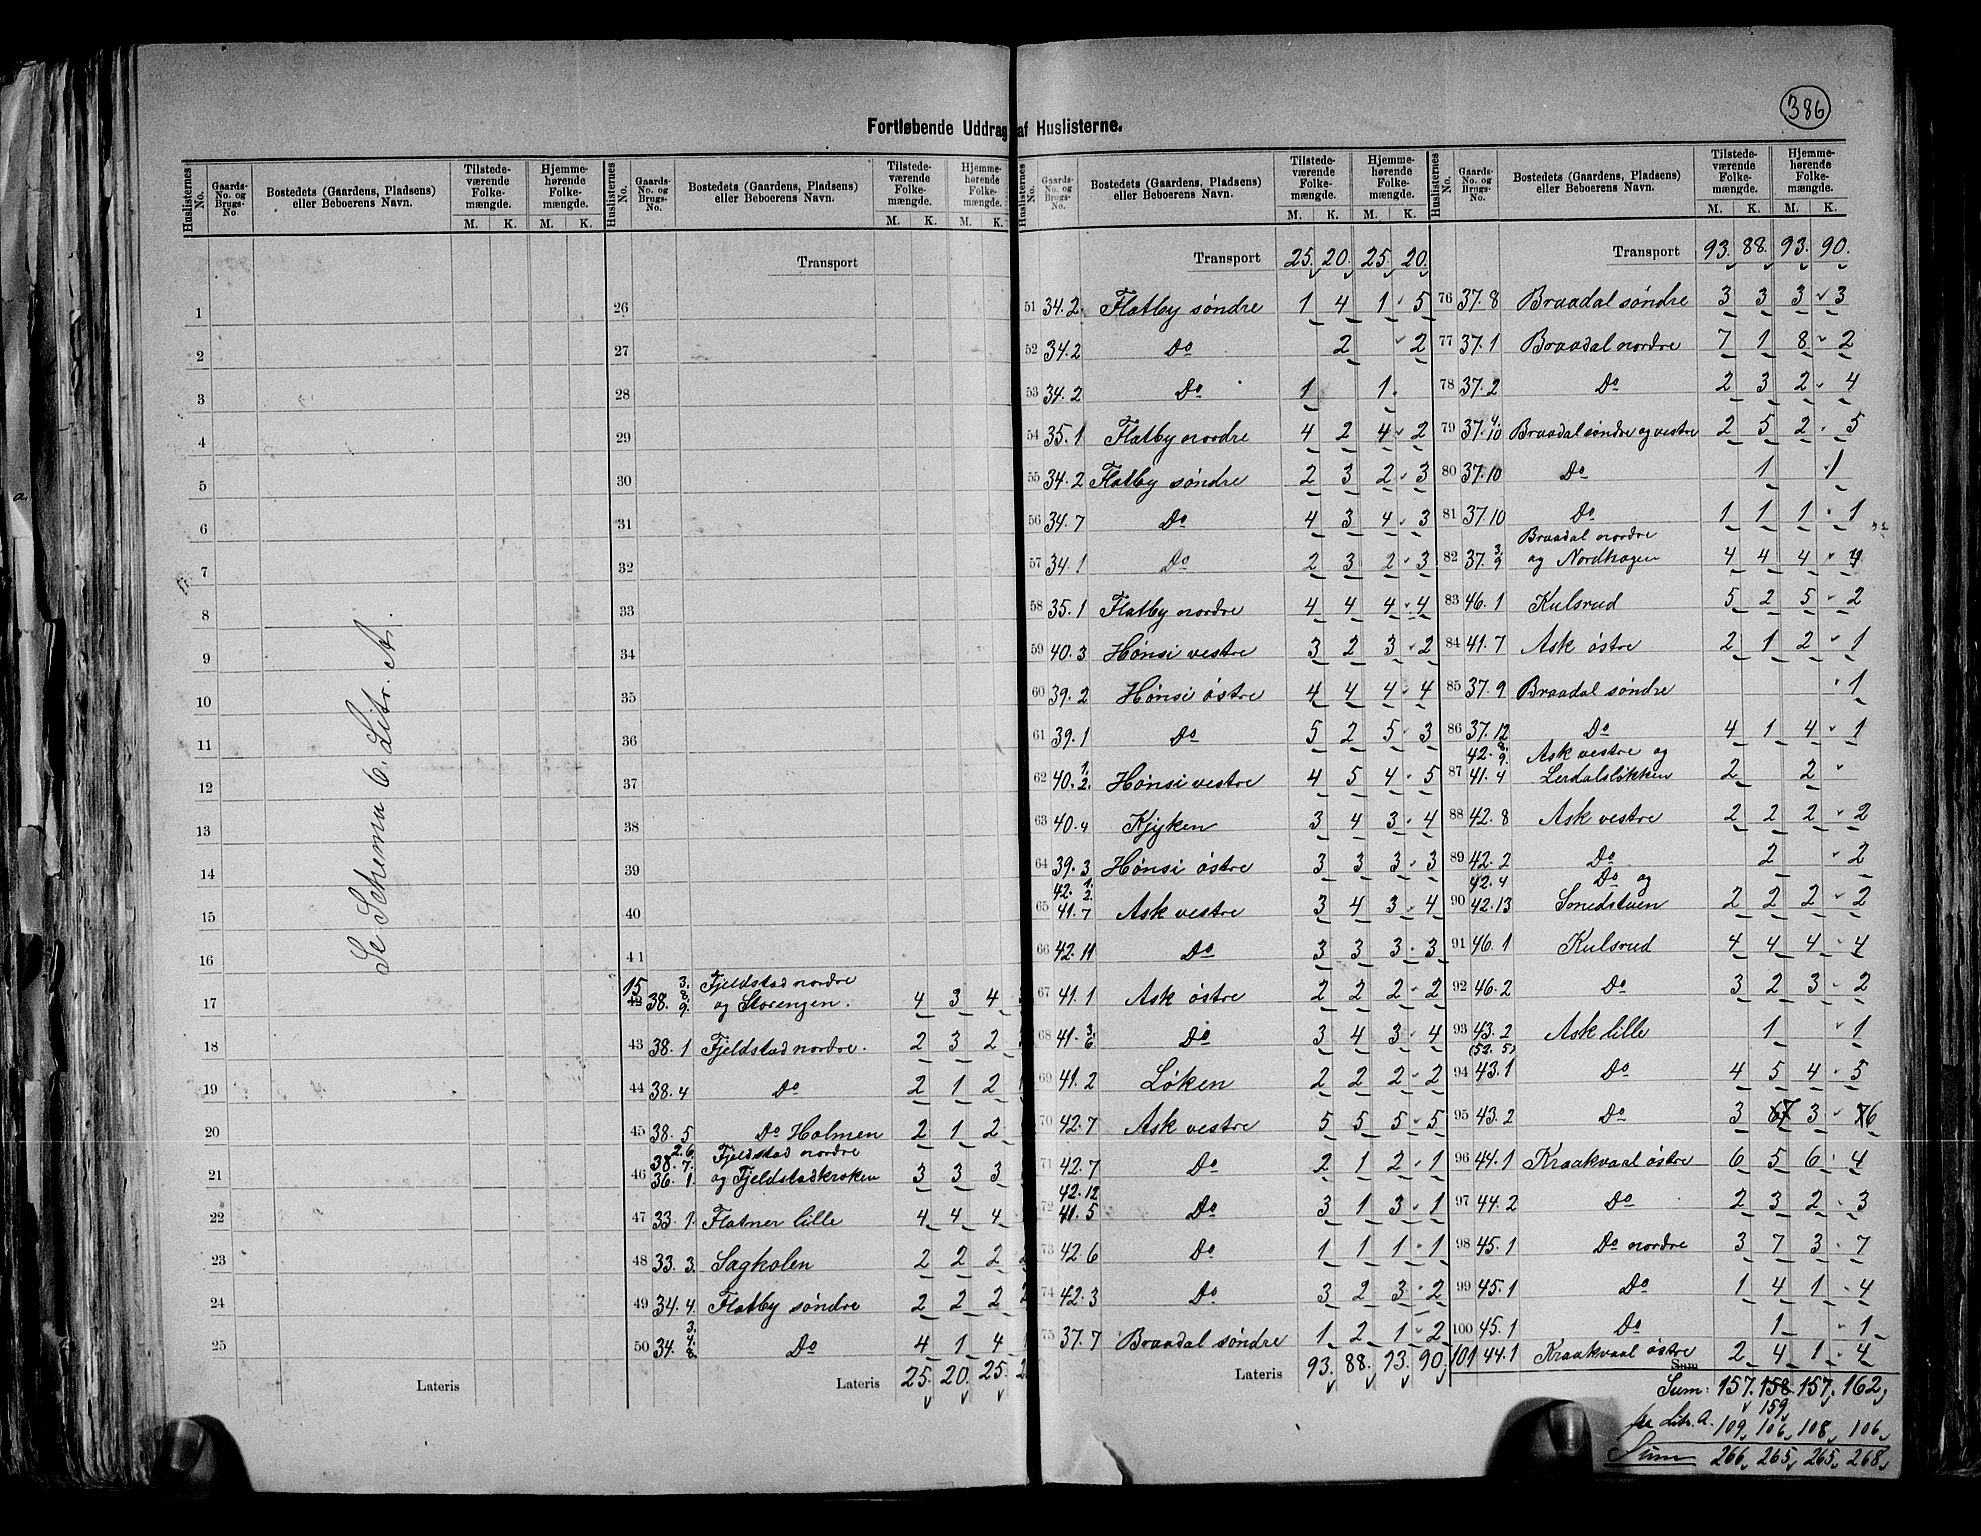 386
Fortløbende Uddrag af Huslisterne.
Huslisternes No. Gaards-No. og Brugs-No. Bostedets (Gaardens, Pladsens) eller Beboerens Navn. Tilstede-værende Folke-mængde. M. K. Hjemme-hørende Folke-mængde. M. K.
Se Schema 6. Litr. A.
1
2
3
4
5
6
7
8
9
10
11
12
13
14
15
16
17
18
19
20
21
22
23
24
25
Lateris
Huslisternes No. Gaards-No. og Brugs-No. Bostedets (Gaardens, Pladsens) eller Beboerens Navn. Tilstede-værende Folke-mængde. M. K. Hjemme-hørende M. K.
Transport
26
27
28
29
30
31
32
33
34
35
36
37
38
39
40
41
15 42 38. 3. 8. 9. Fjeldstad nordre og Storengen. 4 3 4
43 38. 1 Fjeldstad nordre. 2 3 2
44 38. 4 Do 2 1 2
45 38. 5 Do Holmen 2 1 2
46 38. 2. 6. 7. 36. 1 Fjeldstad nordre og Fjeldstadkroken 3 3 3
47 33. 1. Flatner lille 4 4 4
48 33. 3. Sagkolen 2 2 2
49 34. 4. Flatby søndre 2 2 2
50 34. 3. 4. 8. Do 4 1 4
Lateris 25. 20. 25.
Huslisternes No. Gaards-No. og Brugs-No. Bostedets (Gaardens, Pladsens) eller Beboerens Navn. Tilstede-værende Folke-mængde. M. K. Hjemme-hørende Folke-mængde. M. K.
Transport 25. 20. 25. 20.
51 34. 2. Flatby søndre 1 4 1 5
52 34. 2 Do 2 2
53 34. 2 Do 1 1
54 35. 1 Flatby nordre 4 2 4 2
55 34. 2 Flatby søndre 2 3 2 3
56 34. 7 Do 4 3 4 3
57 34. 1 Do 2 3 2 3
58 35. 1 Flatby nordre 4 4 4 4
59 40. 3 Hønsi vestre 3 2 3 2
60 39. 2 Hønsi østre 4 4 4 4
61 39. 1 Do 5 2 5 3
62 40. 1. 2. Hønsi vestre 4 5 4 5
63 40. 4 Kjyken 3 4 3 4
64 39. 3 Hønsi østre 3 3 3 3
65 42. 1. 2. 41. 7 Ask vestre 3 4 3 4
66 42. 11 Do 3 3 3 3
67 41. 1 Ask østre 2 2 2 2
68 41. 3. 6. Do 3 4 3 4
69 41. 2 Løken 2 2 2 2
70 42. 7 Ask vestre 5 5 5 5
71 42. 7 Do 2 1 2 1
72 42. 12 41. 5 Do 3 1 3 1
73 42. 6 Do 1 1 1 1
74 42. 3 Do 3 2 3 2
75 37. 7 Braadal søndre 1 2 1 2
Lateris 93. 88. 93. 90.
Huslisternes No. Gaards-No. og Brugs-No. Bostedets (Gaardens, Pladsens) eller Beboerens Navn. Tilstede-værende Folke-mængde. M. K. Hjemme-hørende Folke-mængde. M. K.
Transport 93. 88. 93. 90.
76 37. 8 Braadal søndre 3 3 3 3
77 37. 1 Braadal nordre 7 1 8 2
78 37. 2 Do 2 3 2 4
79 37. 4. 10 Braadal søndre og vestre 2 5 2 5
80 37. 10 Do 1 1
81 37. 10 Do 1 1 1 1
82 37. 3. 9 Braadal nordre og Nordhagen 4 4 4 4
83 46. 1 Kulsrud 5 2 5 2
84 41. 7 Ask østre 2 1 2 1
85 37. 9 Braadal søndre 1
86 37. 12 Do 4 1 4 1
87 42. 8. 9. 41. 4 Ask vestre og Lerdalsløkken 2 2
88 42. 8 Ask vestre 2 2 2 2
89 42. 2 Do 2 2
90 42. 4 42. 13 Do og Smedstuen 2 2 2 2
91 46. 1 Kulsrud 4 4 4 4
92 46. 2 Do 3 2 3 2
93 43. 2 (52. 5) Ask lille 1 1
94 43. 1 Do 4 5 4 5
95 43. 2 Do 3 7 3 6
96 44. 1 Kraakvaal østre 6 5 6 4
97 44. 2 Do 2 3 2 3
98 45. 1 Do nordre 3 7 3 7
99 45. 1 Do 1 4 1 4
100 45. 1 Do 1 1
101 44. 1 Kraakvaal østre 2 4 1 4
Sum
Sum: 157. 158. 157. 162.
159
pa Litr. A. 109. 106. 108. 106.
Sum 266. 265. 265. 268.